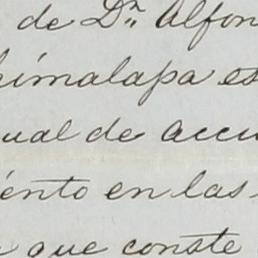 de Dn. Alfon
himalapa es
ual de accu
énto en las
que conste